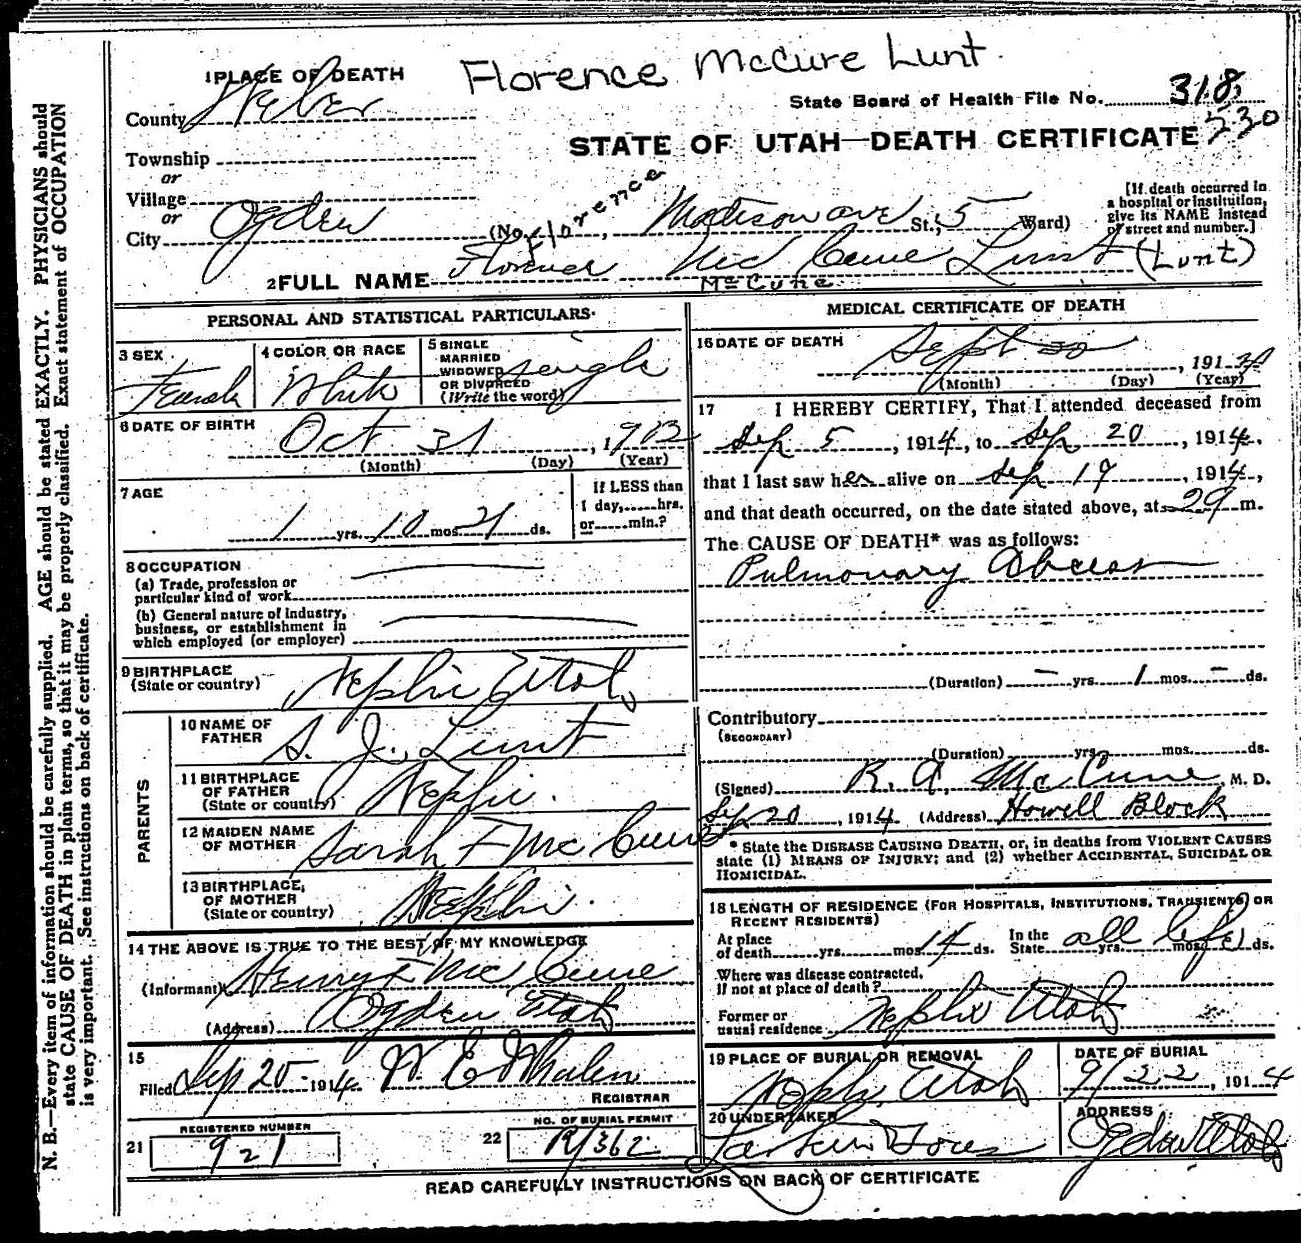 Florence McCure Lunt.
1 PLACE OF DEATH
County Weber
State Board of Health File No. 318
530
STATE OF UTAH—DEATH CERTIFICATE
Township
or
Village
or
City Ogden
Florence
(No. , Madison ave St.; 5 Ward)
[If death occurred in a hospital or institution, give its NAME instead of street and number.]
2 FULL NAME Florence Mc Cune Lunt (Lunt)
McCune
PERSONAL AND STATISTICAL PARTICULARS
3 SEX Female
4 COLOR OR RACE White
5 SINGLE MARRIED WIDOWED OR DIVORCED (Write the word) single
6 DATE OF BIRTH Oct 31, 1912
(Month) (Day) (Year)
7 AGE 1 yrs. 10 mos. 21 ds.
If LESS than 1 day,.....hrs. or.....min.?
8 OCCUPATION
(a) Trade, profession or particular kind of work
(b) General nature of industry, business, or establishment in which employed (or employer)
9 BIRTHPLACE (State or country) Nephi Utah
PARENTS
10 NAME OF FATHER S. J. Lunt
11 BIRTHPLACE OF FATHER (State or country) Nephi.
12 MAIDEN NAME OF MOTHER Sarah F Mc Cune
13 BIRTHPLACE OF MOTHER (State or country) Nephi.
14 THE ABOVE IS TRUE TO THE BEST OF MY KNOWLEDGE
(Informant) Henry F Mc Cune
(Address) Ogden Utah
15
Filed Sep 20 1914. W. E. Whalen
REGISTRAR
21 REGISTERED NUMBER 921
22 NO. OF BURIAL PERMIT 362
MEDICAL CERTIFICATE OF DEATH
16 DATE OF DEATH Sept 20, 191
(Month) (Day) (Year)
17 I HEREBY CERTIFY, That I attended deceased from
Sep 5, 1914, to Sep 20, 1914,
that I last saw her alive on Sep 19, 1914,
and that death occurred, on the date stated above, at 2 a m.
The CAUSE OF DEATH* was as follows:
Pulmonary Abcess
(Duration) — yrs. 1 mos. — ds.
Contributory
(SECONDARY)
(Duration) yrs. mos. ds.
(Signed) R. A. McCune, M. D.
Sep 20, 1914 (Address) Howell Block
* State the DISEASE CAUSING DEATH, or, in deaths from VIOLENT CAUSES
state (1) MEANS OF INJURY; and (2) whether ACCIDENTAL, SUICIDAL OR
HOMICIDAL.
18 LENGTH OF RESIDENCE (FOR HOSPITALS, INSTITUTIONS, TRANSIENTS OR
RECENT RESIDENTS)
At place of death yrs. mos. 14 ds. In the State all life yrs. mos. ds.
Where was disease contracted, if not at place of death?
Former or usual residence Nephi Utah
19 PLACE OF BURIAL OR REMOVAL Nephi, Utah
DATE OF BURIAL 9/22, 1914
20 UNDERTAKER Larkin
ADDRESS Ogden Utah
READ CAREFULLY INSTRUCTIONS ON BACK OF CERTIFICATE
N. B.—Every item of information should be carefully supplied. AGE should be stated EXACTLY. PHYSICIANS should
state CAUSE OF DEATH in plain terms, so that it may be properly classified. Exact statement of OCCUPATION
is very important. See instructions on back of certificate.